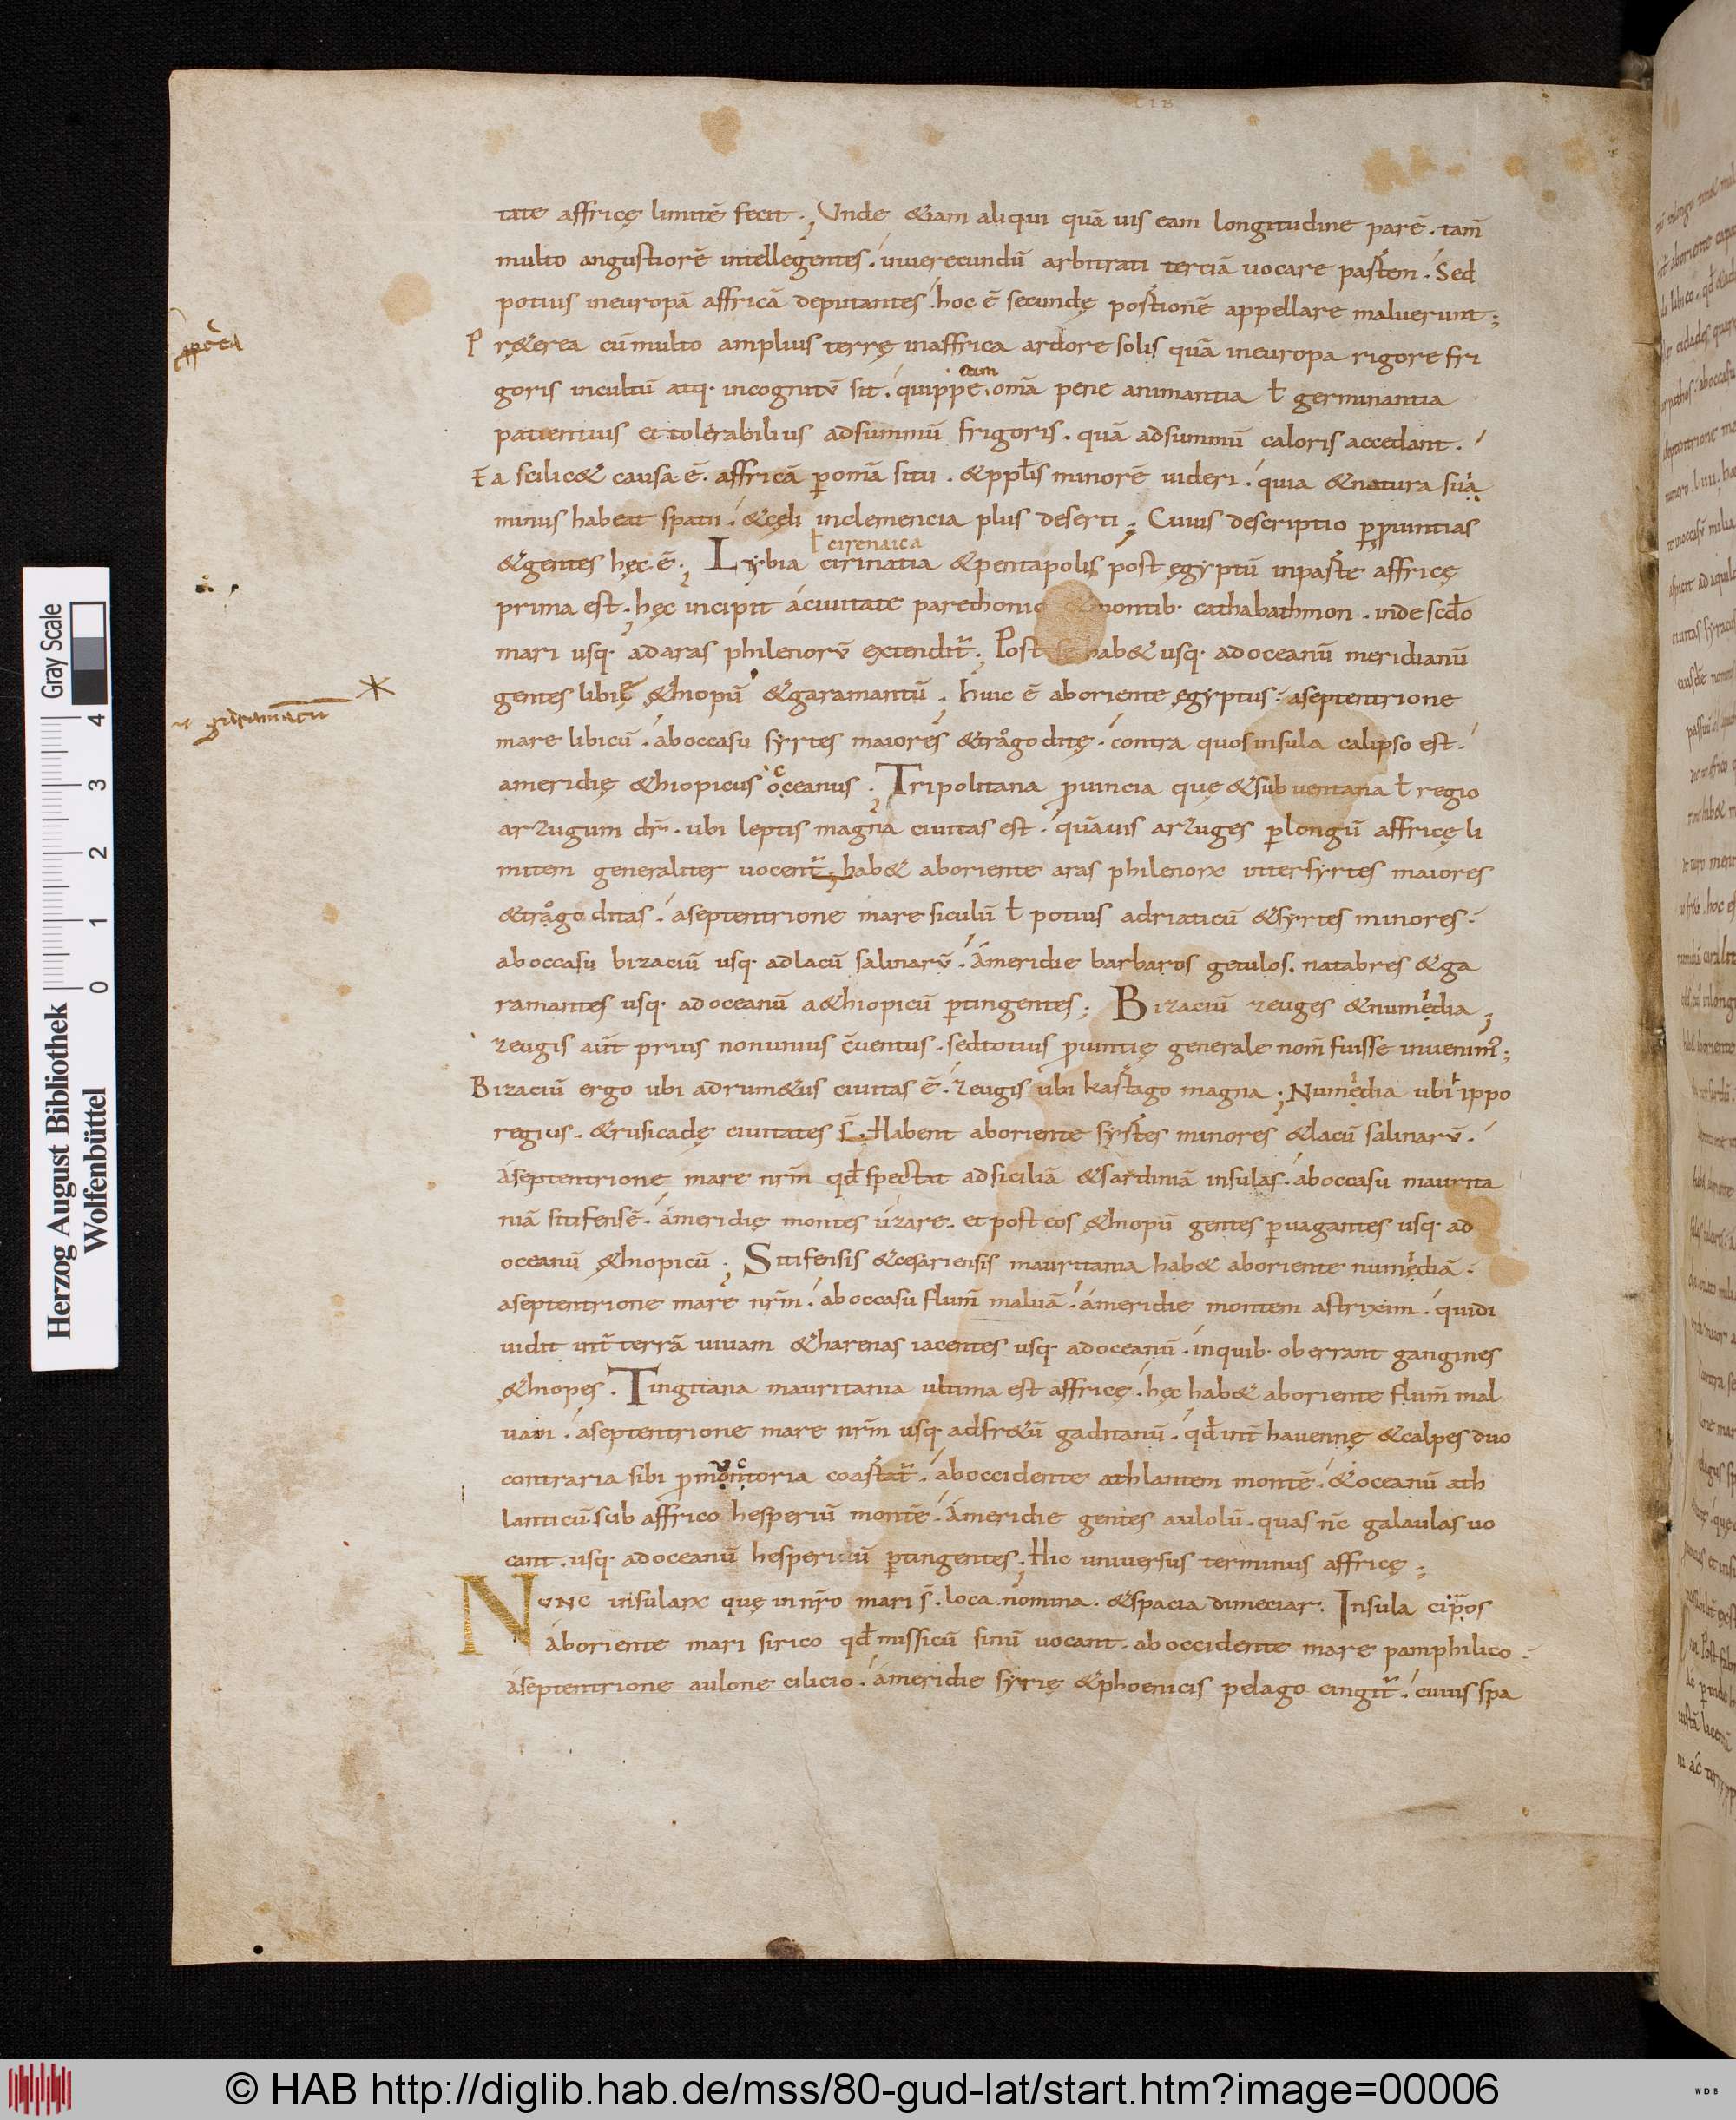 LIB
tate affricę limitē fecit ; Vnde &iam aliqui quā uis eam longitudine parē . tam̄
multo angustiorē intellegentes . inuerecundū arbitrati terciā uocare partem . Sed
potius ineuropā affricā deputantes . hoc ē secundę portionē appellare maluerunt ;
Pręterea
Pręterea cū multo amplius terrę inaffrica ardore solis quā ineuropa rigore fri
eam
goris incultū atq· incognitū sit . quippe omā pene animantia ł germinantia
patientius et tolerabilius adsummū frigoris . quā adsummū caloris accedant .
Ea scilic& causa ē . affricā p̱ omā situ . &pplis minorē uideri . quia &natura sua
minus habeat spatii . &cęli inclemencia plus deserti ; Cuius descriptio p̱ puintias
ł cirenaica
&gentes hęc ē ; Lybia cirinatia &pentapolis post ęgyptū inparte affricę
prima est . hęc incipit áciuitate parethonio &montib· cathabathmon . inde scdo
mari usq· adaras philenorū extendit̄ ; Post se hab& usq· adoceanū meridianū
gentes libię &hiopū &garamantū ; huic ē aboriente ęgyptus . aseptentrione
garamātū
mare libicū . áboccasu syrtes maiores &trago ditę . contra quos insula calipso est .
ameridię &hiopicus oceanus ; Tripolitana puincia quę &subuentana ł regio
arzugum dr̄ . ubi leptis magna ciuitas est . quāuis arzuges p̱ longū affricę li
mitem generaliter uocent̄ ; hab& aboriente aras philenorx inter syrtes maiores
&trago ditas . áseptentrione mare siculū ł potius adriaticū &syrtes minores .
aboccasu bizaciū usq· adlacū salinarū . Ameridie barbaros getulos . natabres &ga
ramantes usq· adoceanū a&hiopicū p̱tingentes ; Bizaciū zeuges &numedia ;
zeugis aūt prius nonunius c̄uentus . sedtotius puintię generale nom̄ fuisse inuenim̄ ;
Bizaciū ergo ubi adrum&us ciuitas ē . zeugis ubi kartago magna ; Numedia ubi ippo
regius . &rusicadę ciuitates s̄ . Habent aboriente syrtes minores &lacū salinarū .
áseptentrione mare nr̄m qđ spectat adsiciliā &sardiniā insulas . aboccasu maurita
niā sitifensē . ámeridię montes úzare . et post eos &hiopū gentes p̱uagantes usq· ad
oceanū &hiopicū ; Sitifensis &cesariensis mauritania hab& aboriente numediā .
aseptentrione mare nr̄m . aboccasu flum̄ maluā . ámeridie montem astrixim . quidi
uidit int̄ terrā uiuam &harenas iacentes usq· adoceanū . inquib· oberrant gangines
&hiopes . Tingitana mauritania ultima est affricę . hęc hab& aboriente flum̄ mal
uam . áseptentrione mare nr̄m usq· adfr&ū gaditanū . qđ int̄ hauennę &calpes duo
contraria sibi pmontoria coartat̄ . áboccidente athlantem montē . &oceanū ath
lanticū . sub affrico hesperiū montē . Ameridie gentes aulolū . quas nc̄ galaulas uo
cant . usq· adoceanū hesperiū p̱tingentes ; Hic uniuersus terminus affricę ;
NUNC insularx quę innr̄o mari s̄ . loca nomina . &spacia dimeciar . Insula cipros
áboriente mari sirico qđ missicū sinū uocant . aboccidente mare pamphilico .
áseptentrione aulone cilicio . ámeridie syrię &phoenicis pelago cingit̄ . cuius spa
Herzog August Bibliothek
Wolfenbüttel
0 1 2 3 4
Gray Scale
© HAB http://diglib.hab.de/mss/80-gud-lat/start.htm?image=00006
WDB